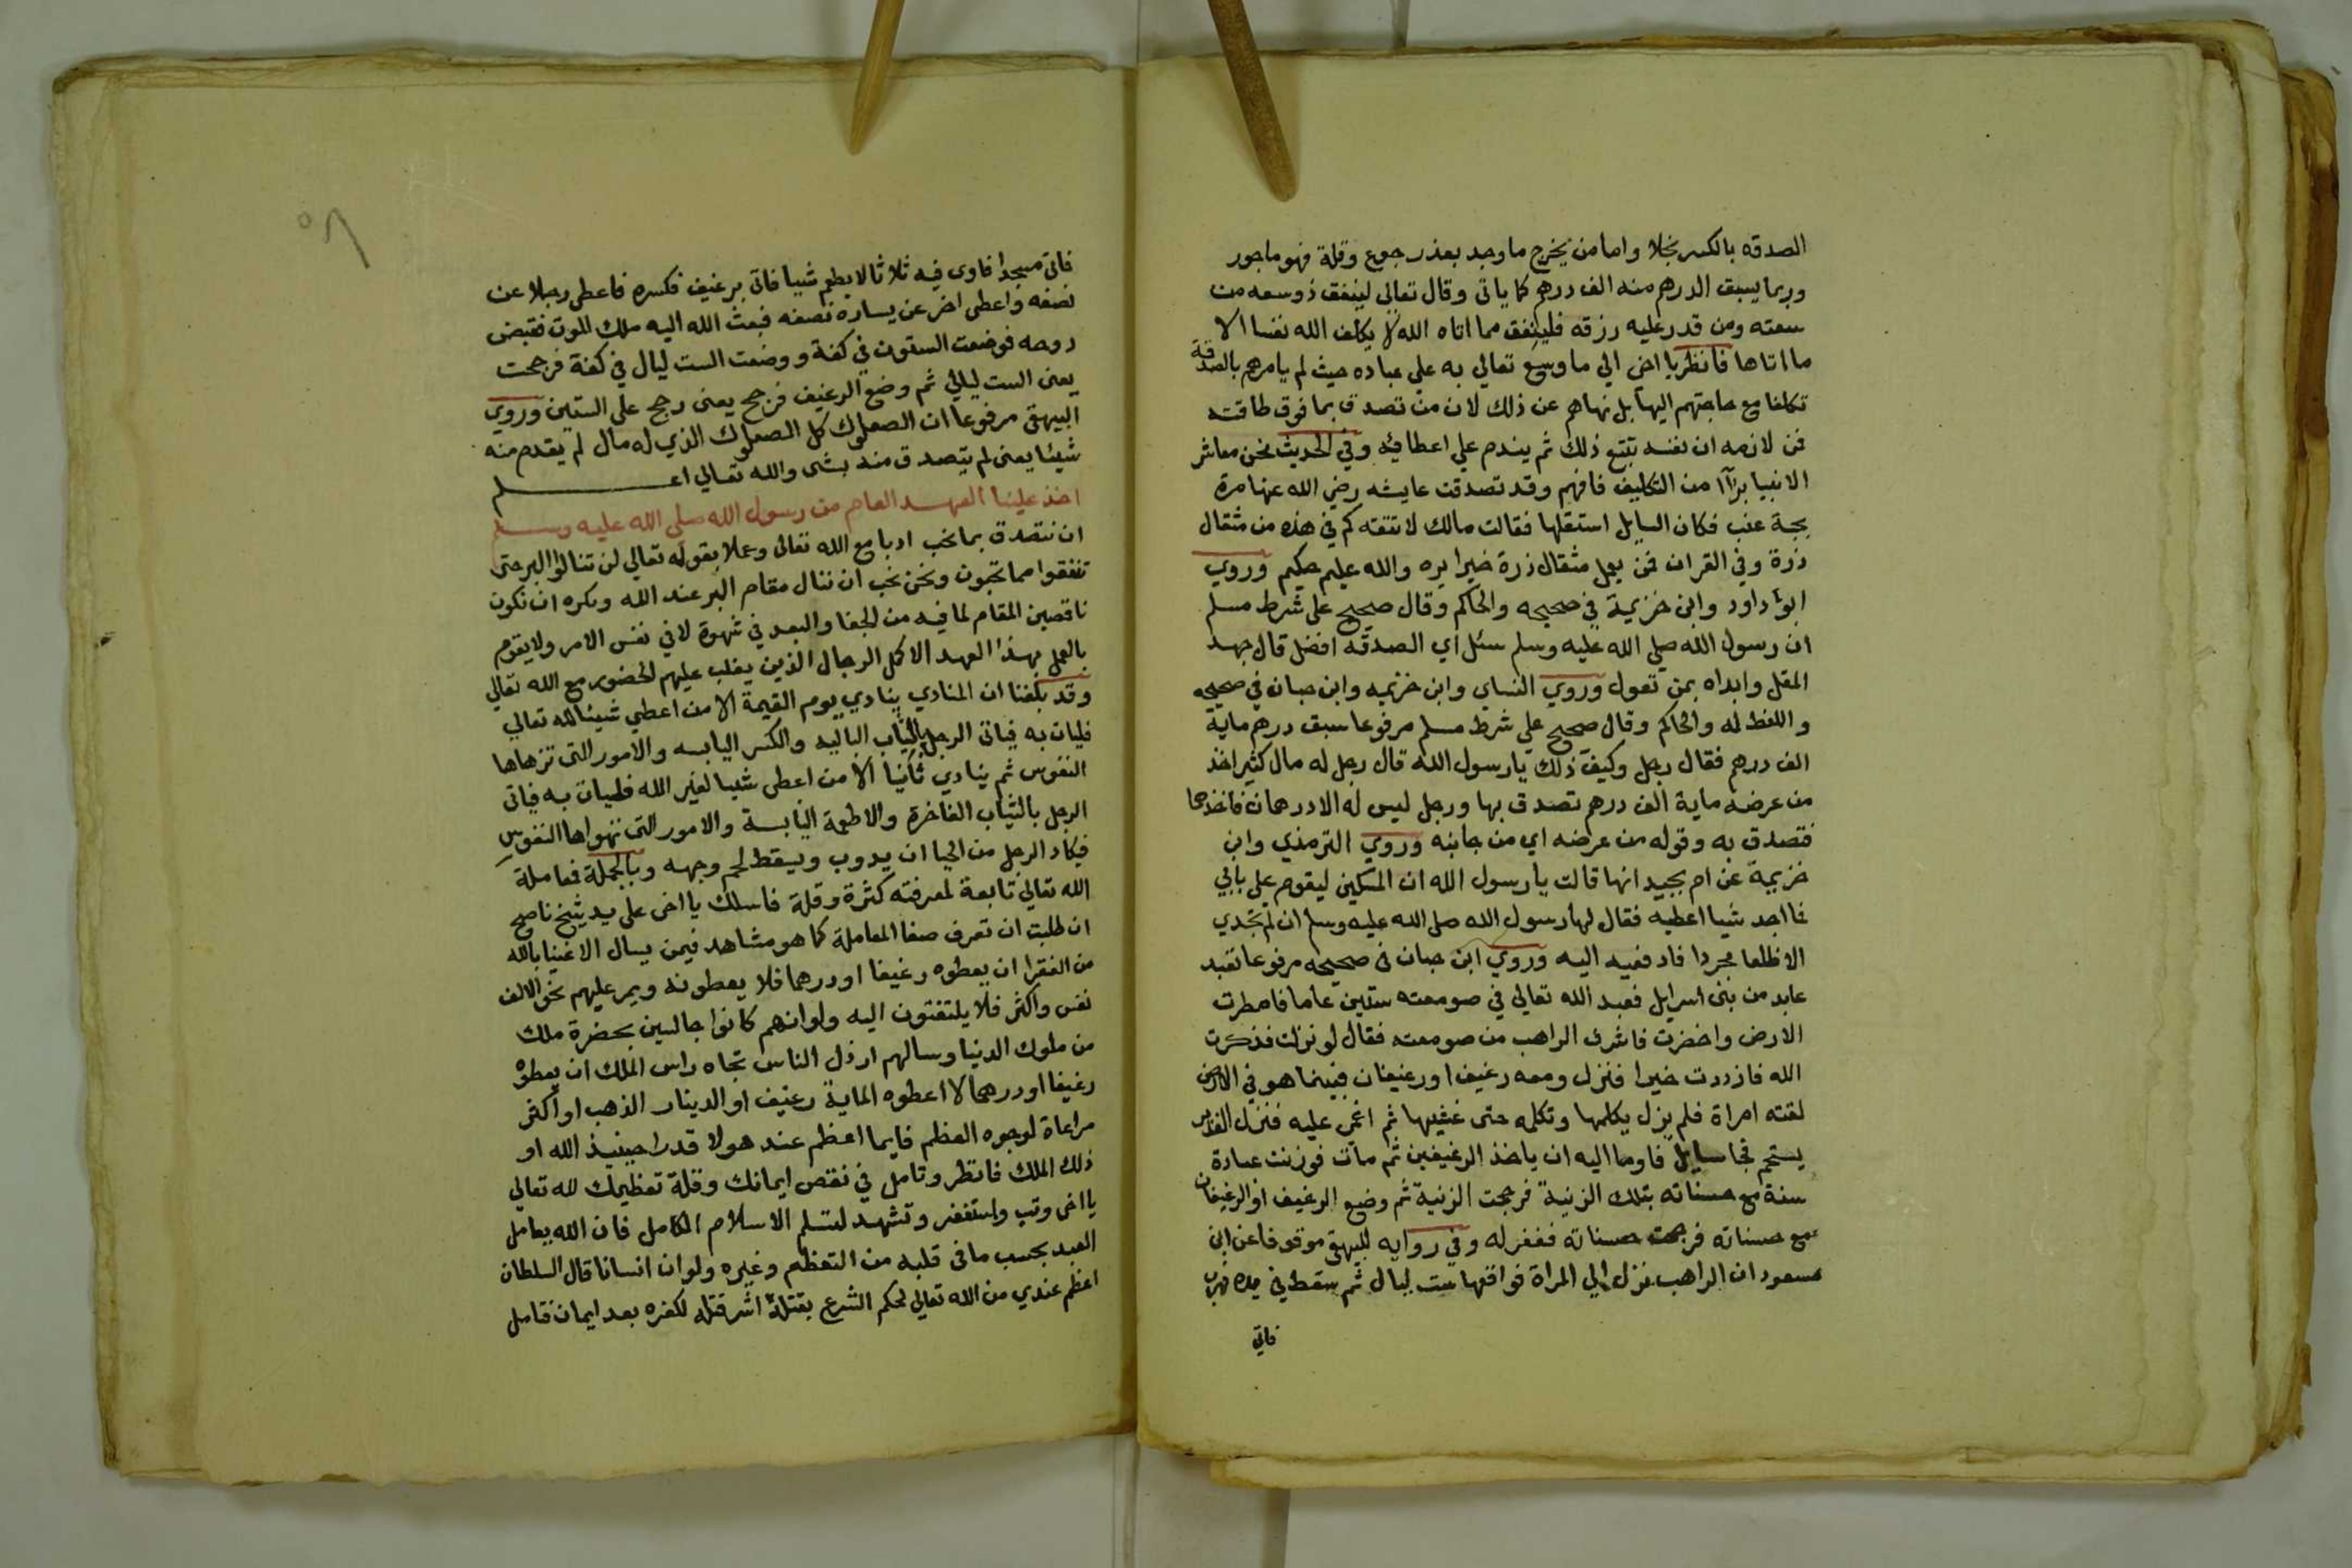 الصدقه بالكسر بخلا واما من يخرج ما وجد بعذر جوع وقلة فهو ماجور
وربما يسبق الدرهم منه الف درهم كما ياتى وقال تعالى لينفق ذو سعه من
سعته ومن قدر عليه رزقه فلينفق مما اتاه الله لا يكلف الله نفسا الا
ما اتاها فانظر يا اخي الي ما وسع تعالي به علي عباده حيث لم يامرهم بالصدقة
تكلفا مع حاجتهم اليها بل نهاهم عن ذلك لان من تصدق بما فوق طاقته
فمن لازمه ان نفسه تتبع ذلك ثم يندم علي اعطايه وفي الحديث نحن معاشر
الانبيا برآآ من التكليف فافهم وقد تصدقت عايشه رضي الله عنها مرة
بحبة عنب فكان السايل استقلها فقالت مالك لا تتفقه كم في هذه من مثقال
ذرة وفي القران فمن يعمل مثقال ذرة خيرا يره والله عليم حكيم وروي
ابو داود وابن خزيمة في صحيحه والحاكم وقال صحيح على شرط مسلم
ان رسول الله صلي الله عليه وسلم سئل اي الصدقه افضل قال جهد
المقل وابداه بمن تعول وروي النساي وابن خزيمه وابن حبان في صحيحه
واللفظ له والحاكم وقال صحيح علي شرط مسلم مرفوعا سبق درهم ماية
الف درهم فقال رجل وكيف ذلك يا رسول الله قال رجل له مال كثير اخذ
من عرضه ماية الف درهم تصدق بها ورجل ليس له الا درهمان فاخذهما
فتصدق به وقوله من عرضه اي من جانبه وروي الترمذي وابن
خزيمة عن ام بجيد انها قالت يا رسول الله ان المسكين ليقوم على بابي
فما اجد شيا اعطيه فقال لها رسول الله صلى الله عليه وسلم ان لم تجدي
الا ظلفا محردا فادفعيه اليه وروي ابن حبان فى صحيحه مرفوعا تعبد
عابد من بنى اسرايل فعبد الله تعالي في صومعته ستين عاما فامطرت
الارض واخضرت فاشرف الراهب من صومعته فقال لو نزلت فذكرت
الله فازددت خيرا فنزل ومعه رغيف اورغيفان فبينما هو في الارض
لقته امراة فلم يزل يكلمها وتكلمه حتى غشيها ثم اغمى عليه فنزل الغدير
يستحم فجا سايل فاوما اليه ان ياخذ الرغيفين ثم مات فوزنت عبادة
سنة مع حسناته بتلك الزنية فرجحت الزنية ثم وضع الرغيف او الرغيفان
مع حسناته فرجحت حسناته فغفر له وفي روايه للبيهقى موقوفا عن ابن
مسعود ان الراهب نزل الي المراة فواقعها ست ليال ثم سقط في يده فهرب
فاتى
فاتى مسجدا فاوى فيه ثلاثا لا يطعم شيا فاتى برغيف فكسره فاعطى رجلا عن
نصفه واعطى اخر عن يساره نصفه فبعث الله اليه ملك الموت فقبض
روحه فوضعت الستون في كفة ووضعت الست ليال في كفة فرجحت
يعنى الست ليالي ثم وضع الرغيف فرجح يعنى رجح على الستين وروي
البيهقى مرفوعا ان الصعلوك كل الصعلوك الذي له مال لم يقدم منه
شيئا يعنى لم يتصدق منه بشى والله تعالي اعلم
اخذ علينا العهد العام من رسول الله صلى الله عليه وسلم
ان نتصدق بما نحب ادبا مع الله تعالى وعملا بقوله تعالي لن تنالوا البر حتى
تنفقوا مما تحبون ونحن نحب ان ننال مقام البر عند الله ونكره ان نكون
ناقصين المقام لما فيه من الجفا والبعد في شهوة لا في نفس الامر ولا يقوم
بالعمل بهذا العهد الا كمل الرجال الذين يغلب عليهم الحضور مع الله تعالي
وقد بلغنا ان المنادي ينادي يوم القيمة الا من اعطي شيئا لله تعالي
فليات به فياتى الرجل بالثياب الباليه والكسر اليابسه والامور التى تزهاها
النفوس ثم ينادي ثانيا الا من اعطى شيا لغير الله فليات به فياتى
الرجل بالثياب الفاخرة والاطعمة اليابسة والامور التى تهواها النفوس
فيكاد الرجل من الحيا ان يدوب ويسقط لحم وجهه وبالجملة فعاملة
الله تعالي تابعة لمعرفته كثرة وقلة فاسلك يا اخى على يد شيخ ناصح
ان طلبت ان تعرف صفا المعاملة كما هو مشاهد فيمن يسال الاغنيا بالله
من الفقرا ان يعطوه رغيفا اودرهما فلا يعطونه ويمر عليهم نحو الالف
نفس واكثر فلا يلتفتون اليه ولوانهم كانوا جالسين بحضرة ملك
من ملوك الدنيا وسالهم ارذل الناس تجاه راس الملك ان يعطوه
رغيفا اودرهما لا اعطوه الماية رغيف او الدينار الذهب او اكثر
مراعاة لوجوه العظم فايما اعظم عند هولا قدرا حينيذ الله او
ذلك الملك فانظر وتامل في نقص ايمانك وقلة تعظيمك لله تعالي
يا اخى وتب واستغفر وتشهد لتسلم الاسلام الكامل فان الله يعامل
العبد بحسب ما في قلبه من التعظيم وغيره ولو ان انسانا قال السلطان
اعظم عندي من الله تعالي لحكم الشرع بقتلة اشر قتله لكفره بعد ايمان فامل